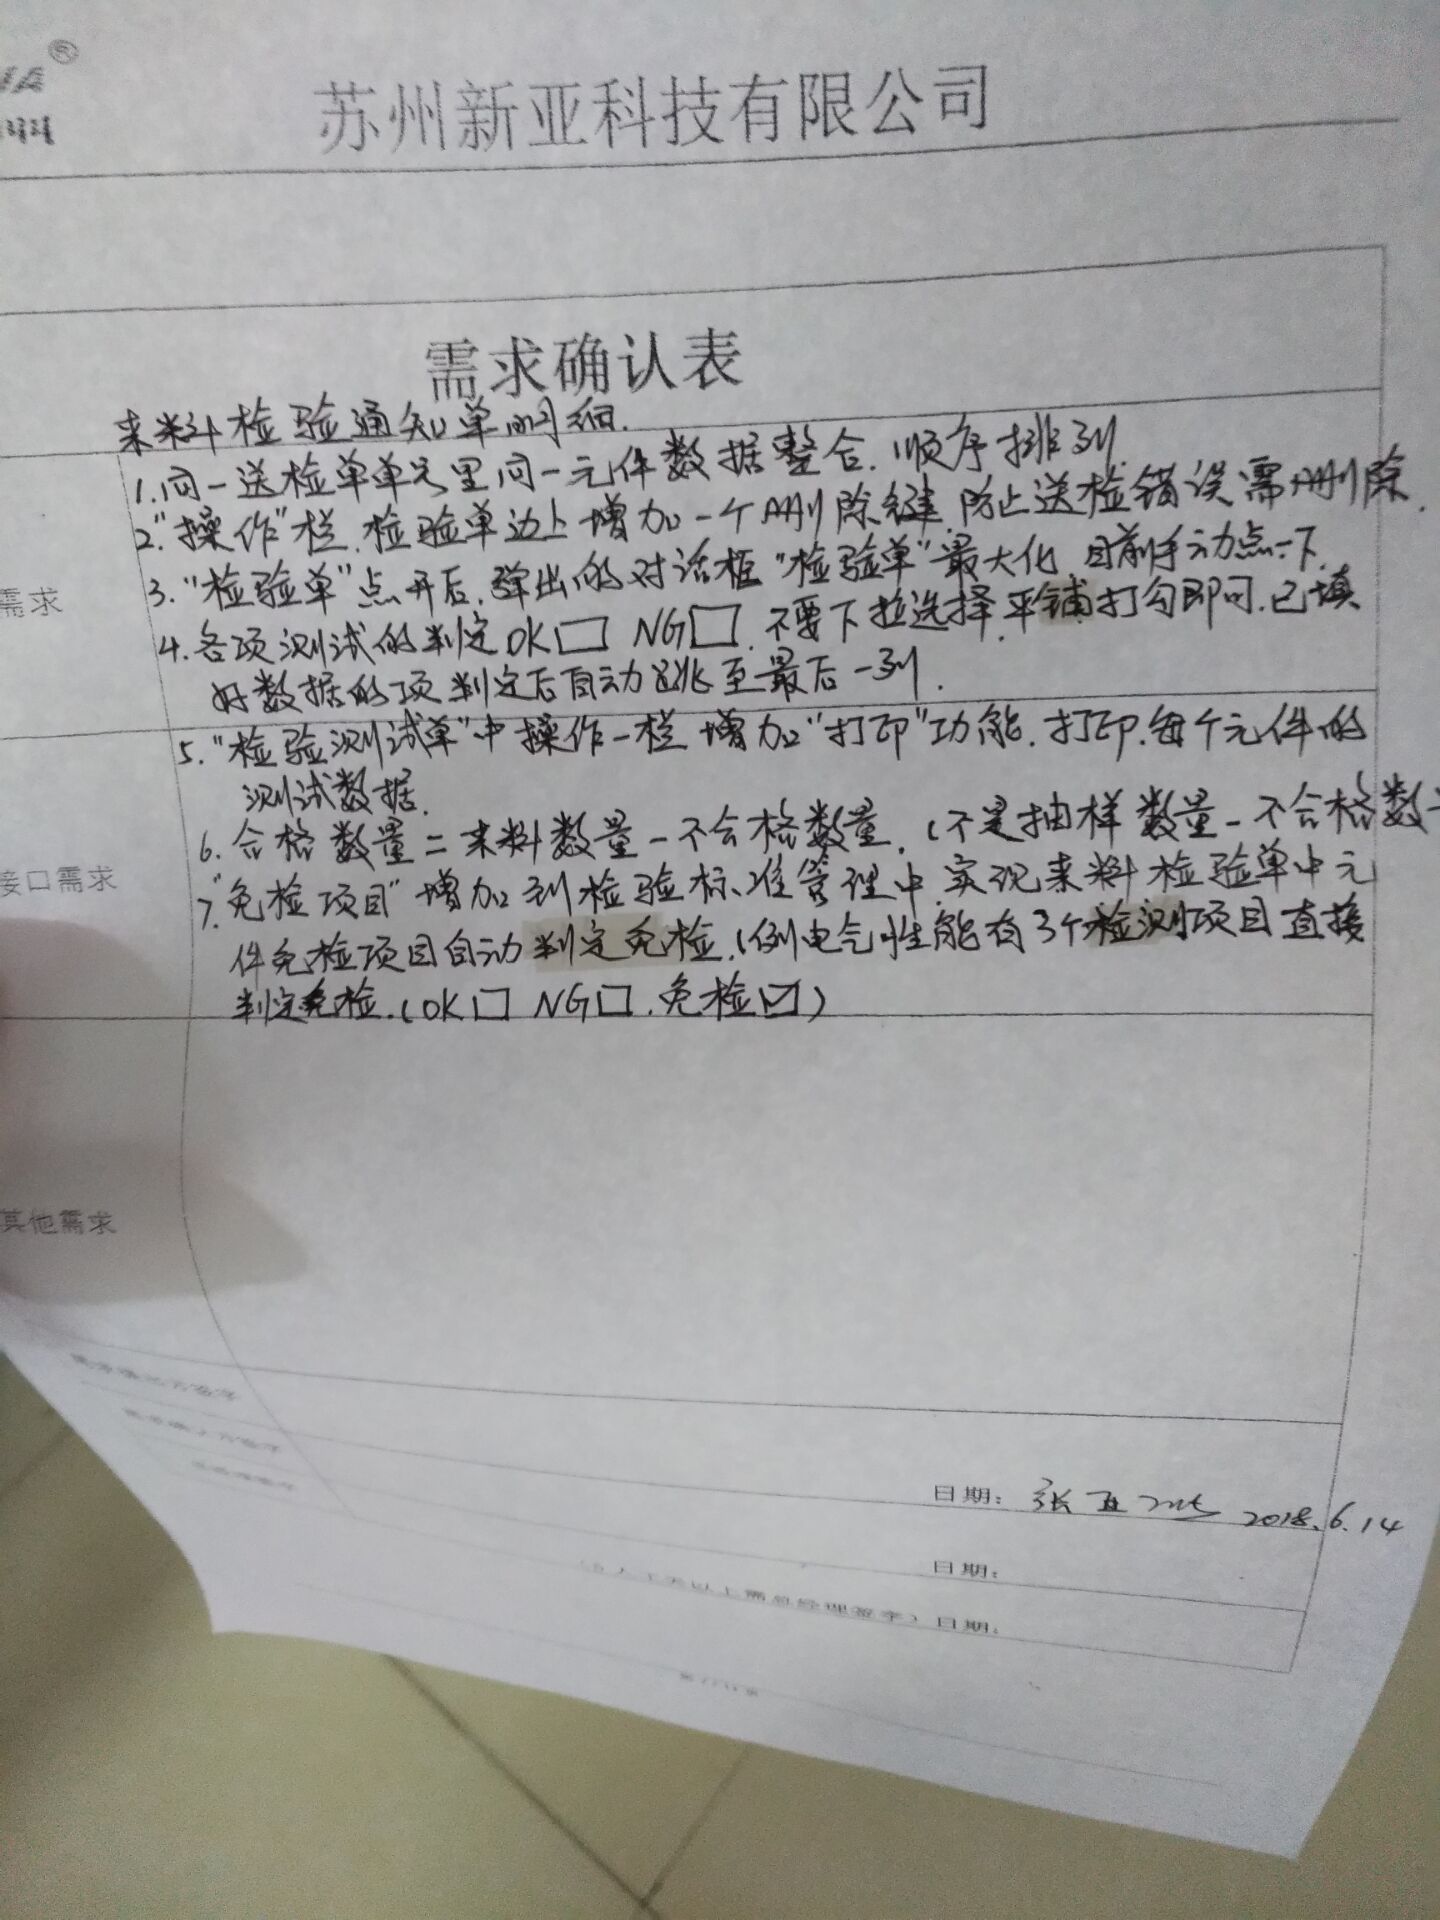 苏州新亚科技有限公司
需求确认表
来料检验通知单明细.
1.同一送检单单号里同一元件数据整合.顺序排列.
2."操作"栏.检验单边上增加一个删除键.防止送检错误需删除.
3."检验单"点开后.弹出的对话框"检验单"最大化.目前手动点一下.
需求
4.各项测试的判定OK□ NG□.不要下拉选择.平铺打勾即可.已填
好数据的项判定后自动跳至最后一列.
5."检验测试单"中操作一栏增加"打印"功能.打印.每个元件的
测试数据.
6.合格数量=来料数量-不合格数量.(不是抽样数量-不合格数
接口需求
7."免检项目"增加到检验标准管理中.实现来料检验单中元
件免检项目自动判定免检.(例电气性能有3个检测项目直接
判定免检.(OK□ NG□.免检☑)
其他需求
日期: 张亚 2018.6.14
日期:
天以上需总经理签字)日期: